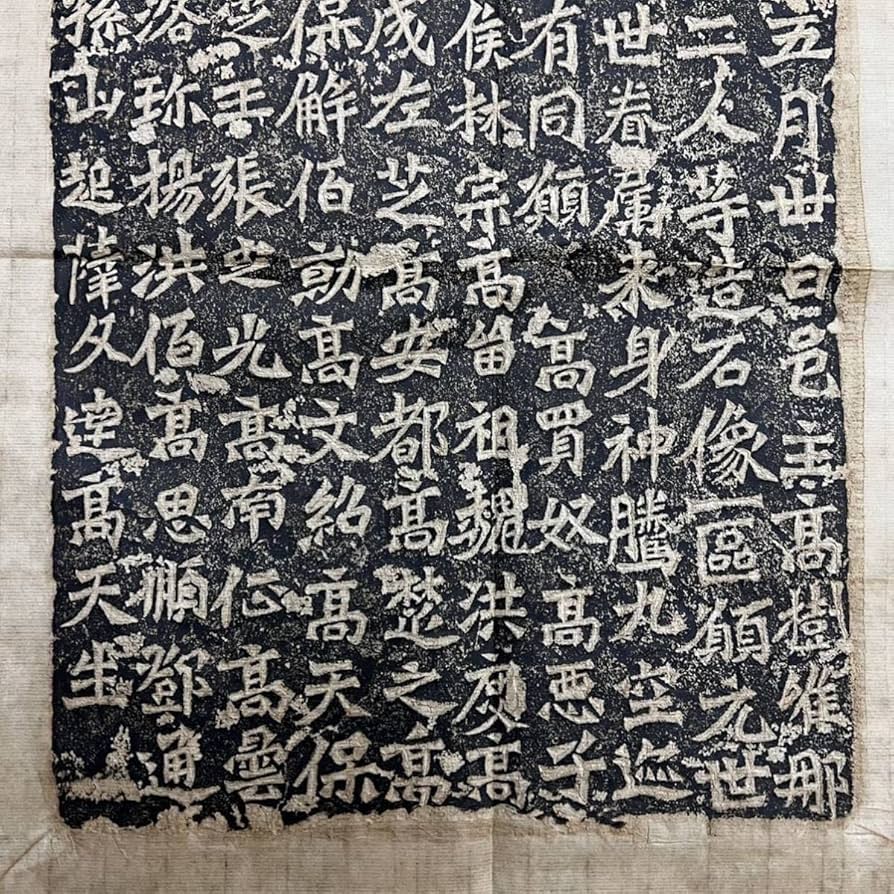 五月卅日邑主高樹唯那
二人等造石像一區願元世
世眷属来身神騰九空迊
有同願 高買奴 高悪子
侯林宗高留祖魏洪度高
成左芝高安都高楚之高
保解佰勍高文紹高天保
王張芝光高南征高曇
洛珎揚洪佰高思順鄧通
孫山起薛文達高天生